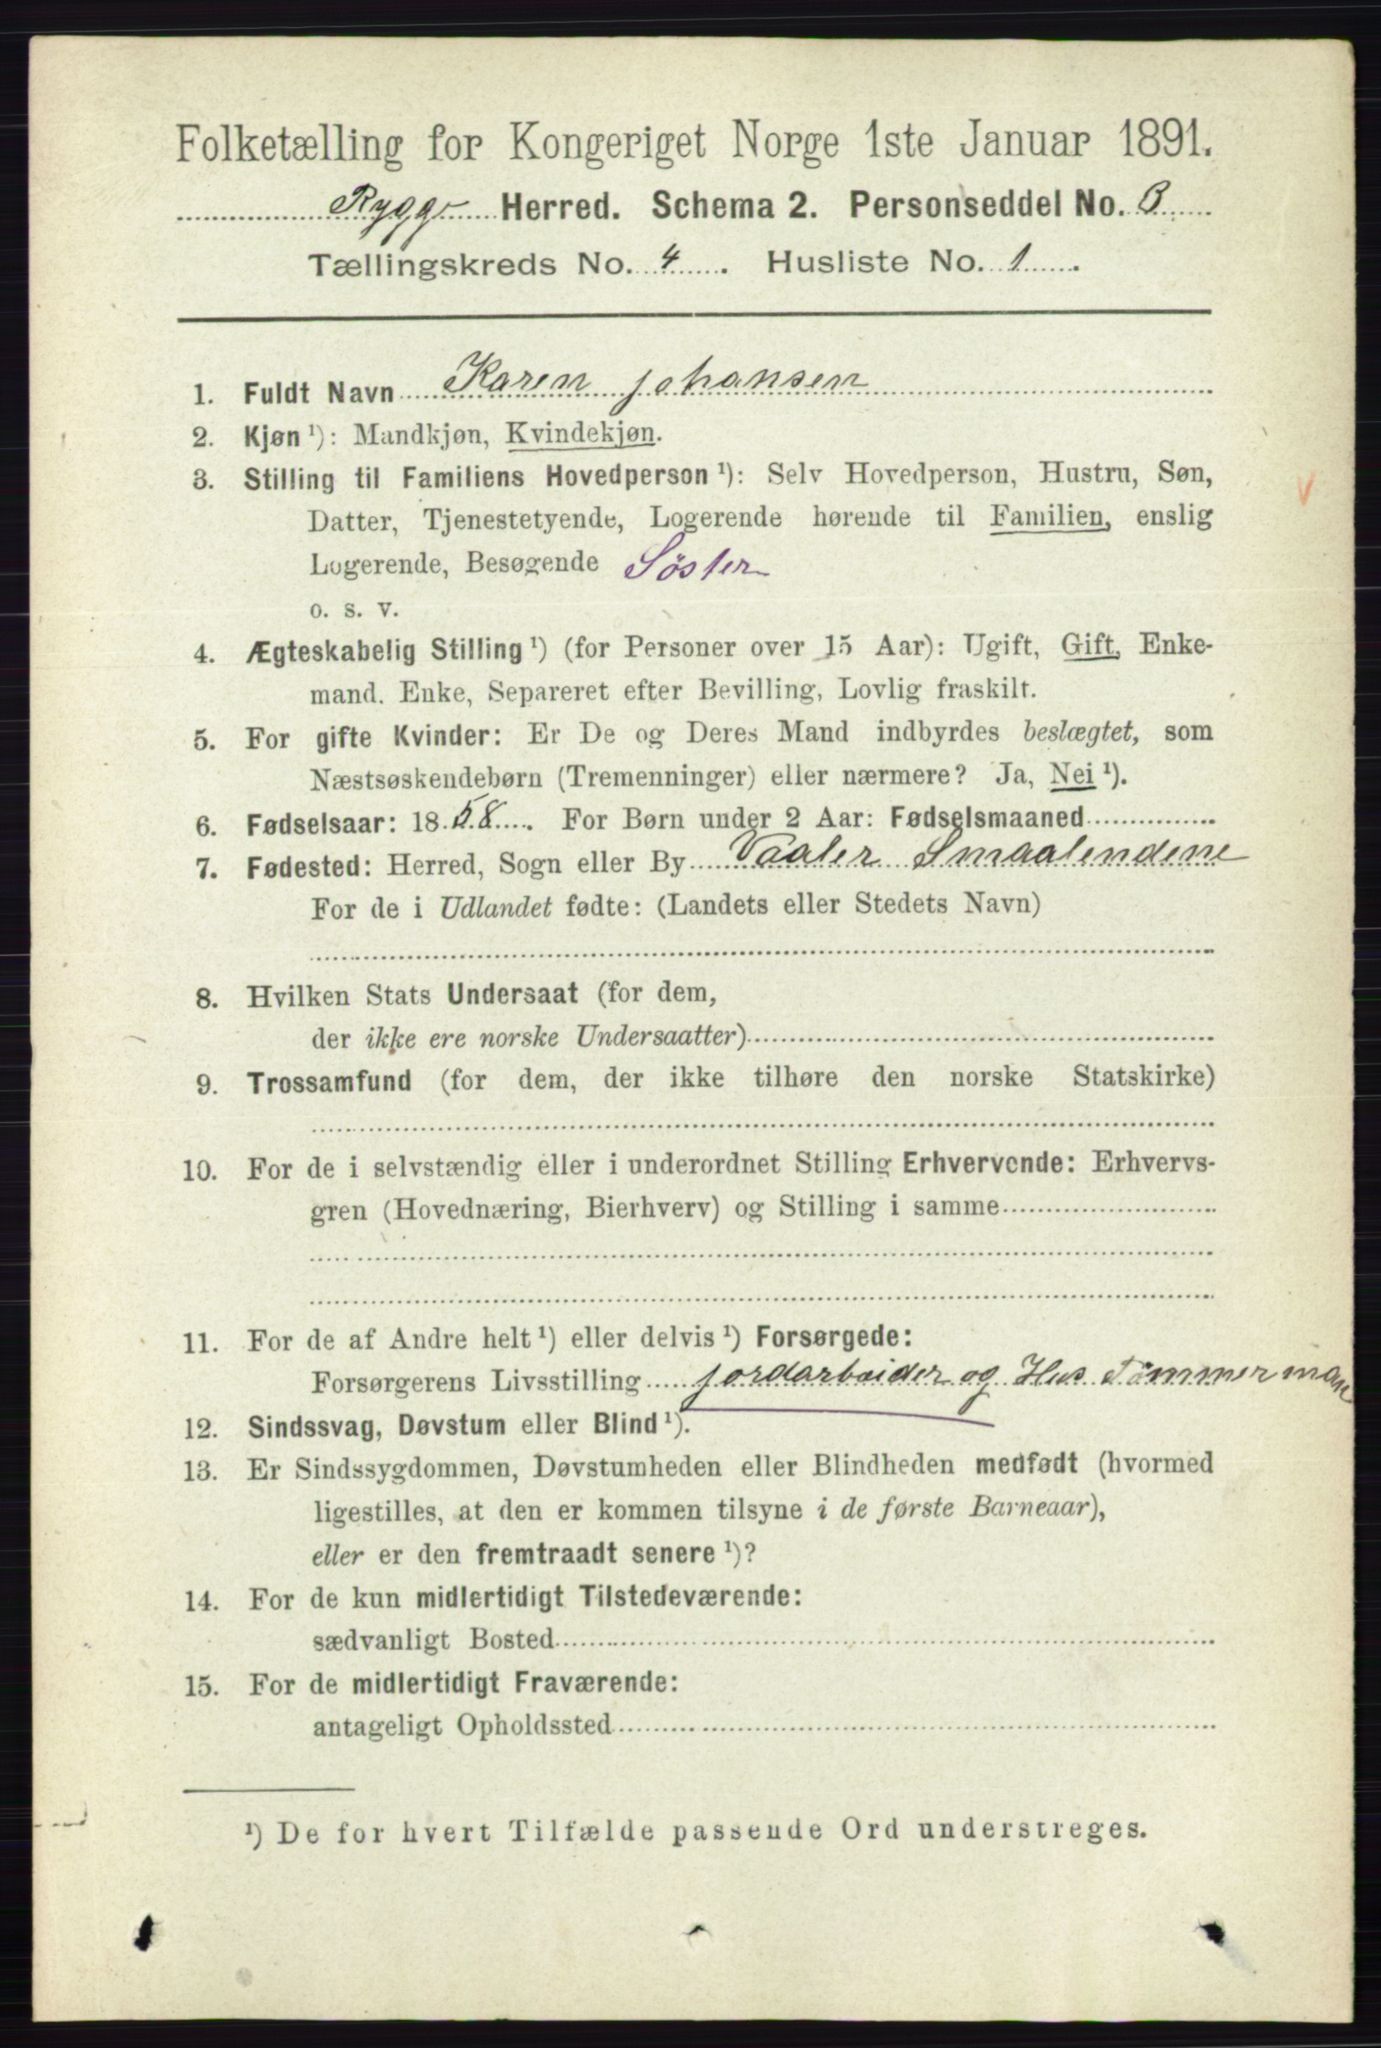 Folketælling for Kongeriget Norge 1ste Januar 1891.
Rygge Herred. Schema 2. Personseddel No. 3
Tællingskreds No. 4. Husliste No. 1.
1. Fuldt Navn Karen Johansen
2. Kjøn ¹): Mandkjøn, Kvindekjøn.
3. Stilling til Familiens Hovedperson ¹): Selv Hovedperson, Hustru, Søn,
Datter, Tjenestetyende, Logerende hørende til Familien, enslig
Logerende, Besøgende Søster
o. s. v.
4. Ægteskabelig Stilling ¹) (for Personer over 15 Aar): Ugift, Gift, Enke-
mand. Enke, Separeret efter Bevilling, Lovlig fraskilt.
5. For gifte Kvinder: Er De og Deres Mand indbyrdes beslægtet, som
Næstsøskendebørn (Tremenninger) eller nærmere? Ja, Nei ¹).
6. Fødselsaar: 1858. For Børn under 2 Aar: Fødselsmaaned
7. Fødested: Herred, Sogn eller By Vaaler Smaalendene
For de i Udlandet fødte: (Landets eller Stedets Navn)
8. Hvilken Stats Undersaat (for dem,
der ikke ere norske Undersaatter)
9. Trossamfund (for dem, der ikke tilhøre den norske Statskirke)
10. For de i selvstændig eller i underordnet Stilling Erhvervende: Erhvervs-
gren (Hovednæring, Bierhverv) og Stilling i samme
11. For de af Andre helt ¹) eller delvis ¹) Forsørgede:
Forsørgerens Livsstilling jordarbeider og Hus Tømmerman
12. Sindssvag, Døvstum eller Blind ¹).
13. Er Sindssygdommen, Døvstumheden eller Blindheden medfødt (hvormed
ligestilles, at den er kommen tilsyne i de første Barneaar),
eller er den fremtraadt senere ¹)?
14. For de kun midlertidigt Tilstedeværende:
sædvanligt Bosted
15. For de midlertidigt Fraværende:
antageligt Opholdssted
¹) De for hvert Tilfælde passende Ord understreges.